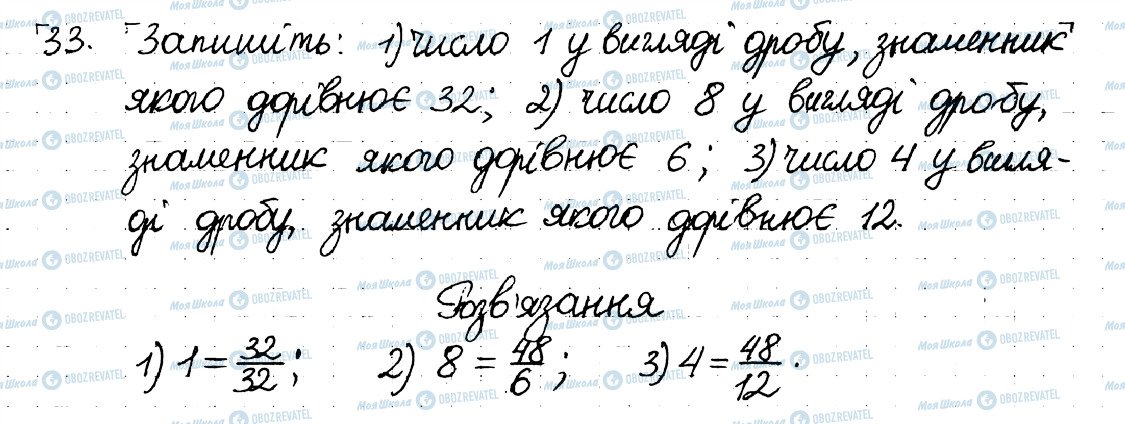 33. Запишіть: 1) число 1 у вигляді дробу, знаменник
якого дорівнює 32; 2) число 8 у вигляді дробу,
знаменник якого дорівнює 6; 3) число 4 у вигля-
ді дробу, знаменник якого дорівнює 12.
Розв'язання
1) 1 = 32/32; 2) 8 = 48/6; 3) 4 = 48/12.